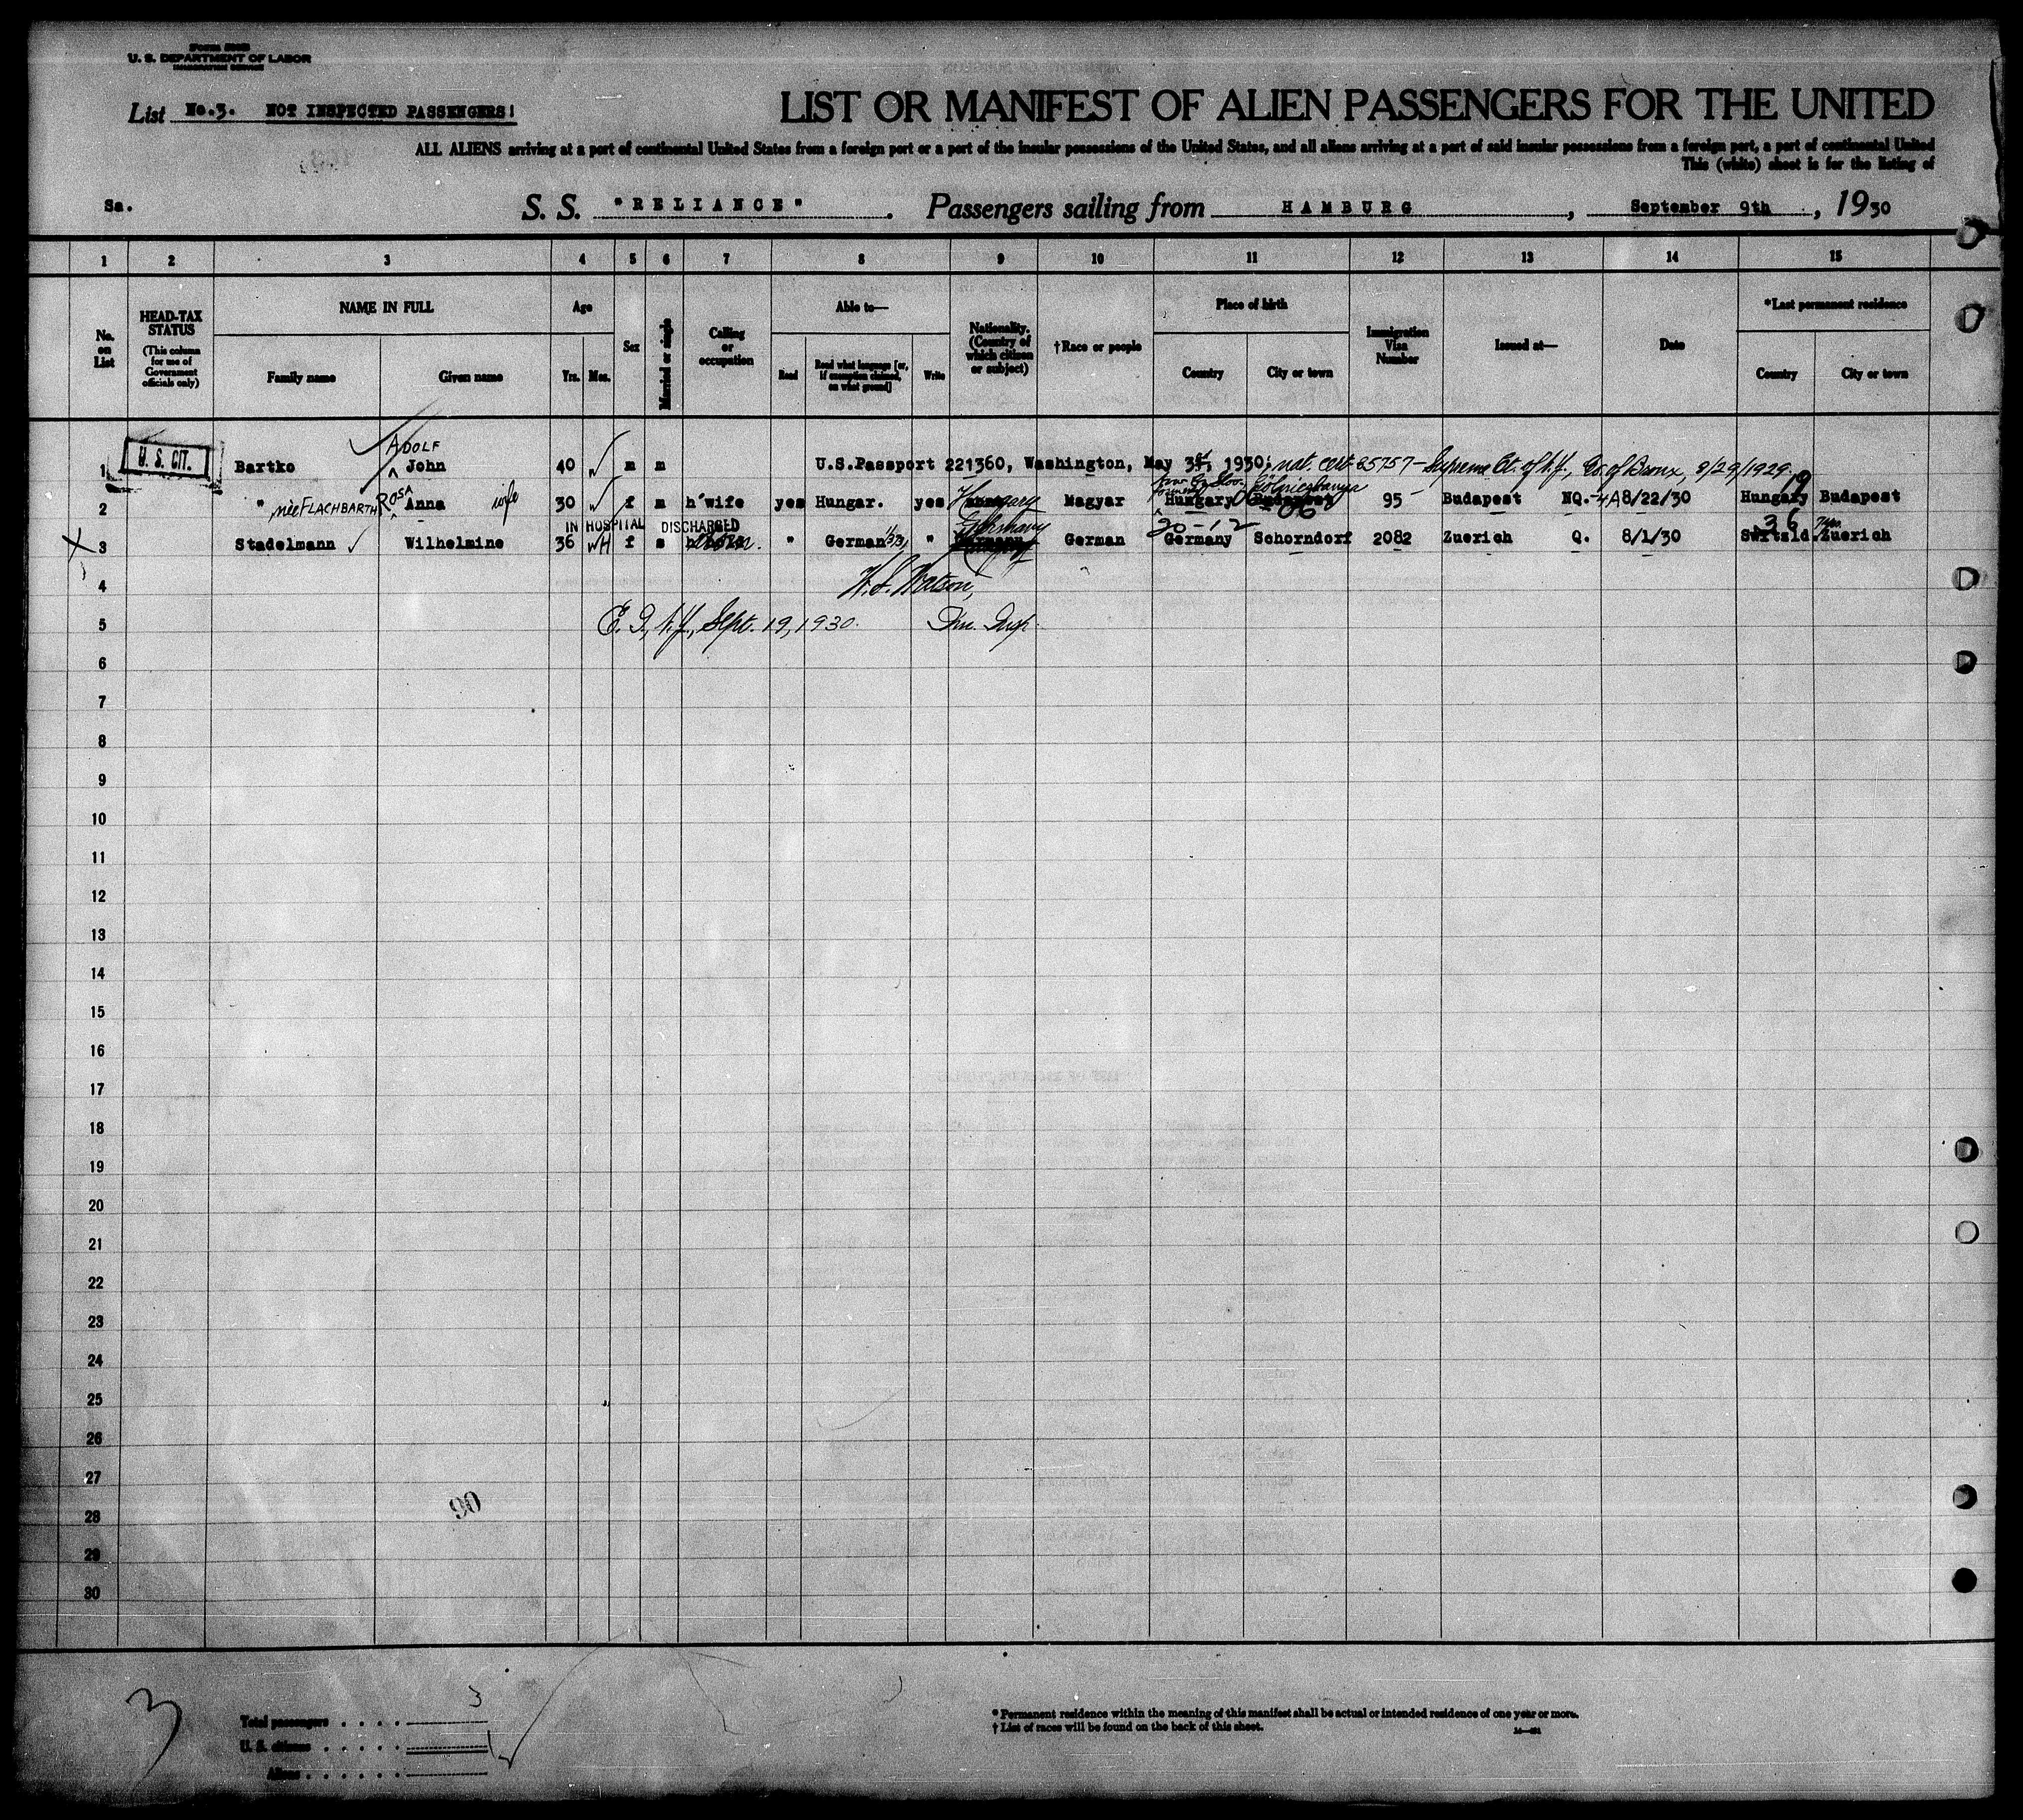 U. S. DEPARTMENT OF LABOR
IMMIGRATION SERVICE
List No.3. NOT INSPECTED PASSENGERS!
LIST OR MANIFEST OF ALIEN PASSENGERS FOR THE UNITED
ALL ALIENS arriving at a port of continental United States from a foreign port or a port of the insular possessions of the United States, and all aliens arriving at a port of said insular possessions from a foreign port, a port of continental United
This (white) sheet is for the listing of
Sa. S. S. "RELIANCE". Passengers sailing from HAMBURG, September 9th, 1930
1 2 3 4 5 6 7 8 9 10 11 12 13 14 15
No. on List
HEAD-TAX STATUS
(This column for use of Government officials only)
NAME IN FULL
Family name Given name
Age
Yrs. Mos.
Sex
Married or single
Calling or occupation
Able to—
Read Read what language [or, if exemption claimed, on what ground] Write
Nationality. (Country of which citizen or subject)
†Race or people
Place of birth
Country City or town
Immigration Visa Number
Issued at—
Date
*Last permanent residence
Country City or town
ADOLF
1 U. S. CIT. Bartko John 40 m m U.S.Passport 221360, Washington, May 31, 1930; nat. cert 25757 - Supreme Ct. of N.Y., Co. of Bronx, 8/29/1929.
19
2 " née FLACHBARTH ROSA Anna wife 30 f m h'wife yes Hungar. yes Hungary Magyar Hungary Budapest 95 Budapest NQ.-4A 8/22/30 Hungary Budapest
IN HOSPITAL DISCHARGED Germany 20-12 06 36
3 Stadelmann Wilhelmine 36 WH f s " German " Germany German Germany Schorndorf 2082 Zuerich Q. 8/1/30 Switzld. Zuerich
4 W. S. Watson,
5 E. I., N.Y., Sept. 19, 1930. Im. Insp.
6
7
8
9
10
11
12
13
14
15
16
17
18
19
20
21
22
23
24
25
26
27
90
28
29
30
3
Total passengers 3
U. S. citizens 1
Aliens
* Permanent residence within the meaning of this manifest shall be actual or intended residence of one year or more.
† List of races will be found on the back of this sheet.